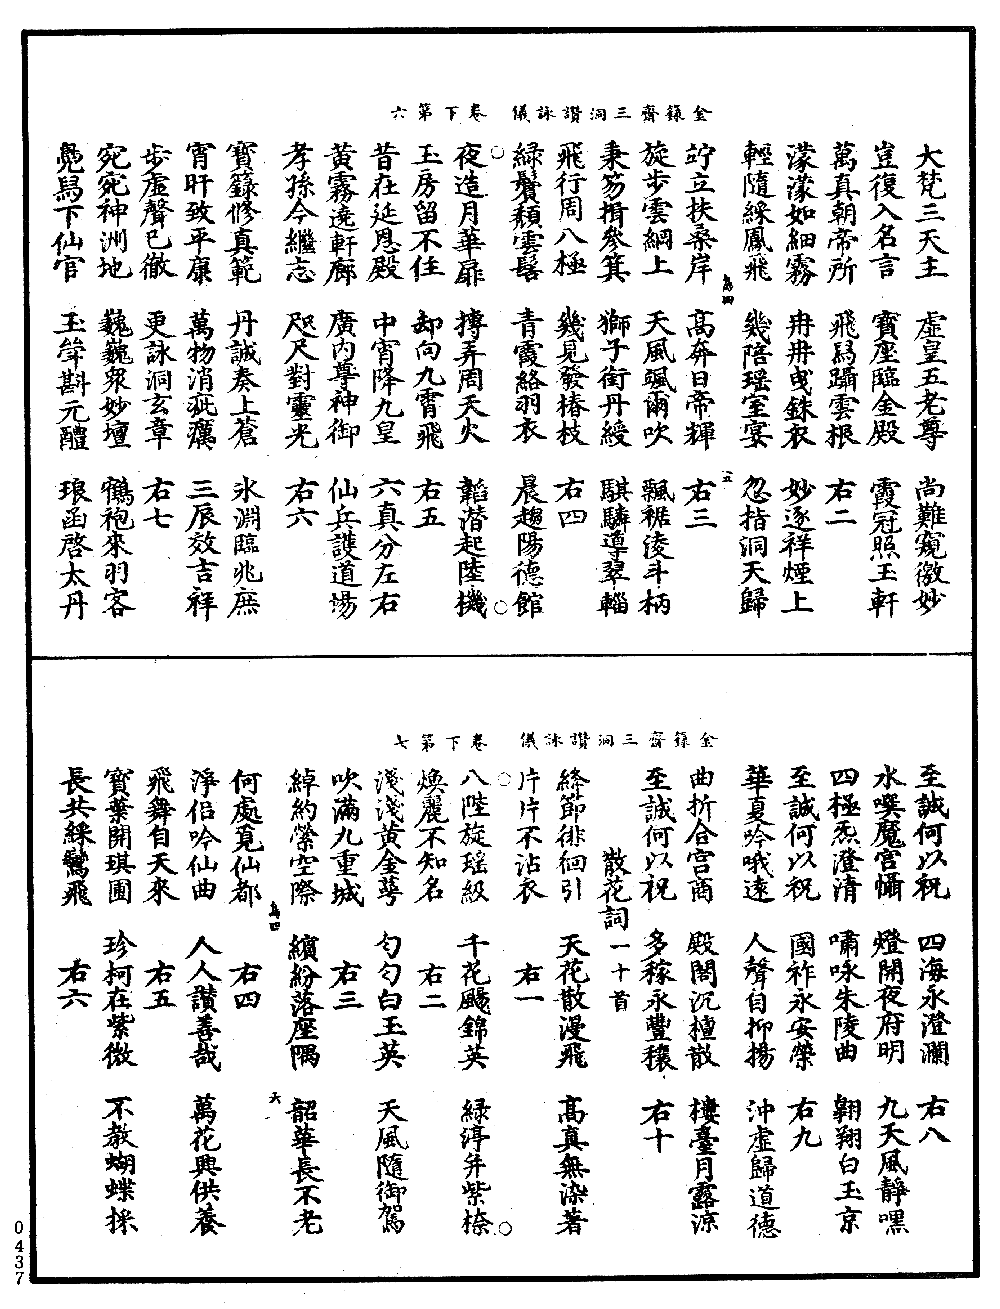 金籙齋三洞讚詠儀　卷下第六
大梵三天主　虛皇五老尊　尚難窺微妙
豈復入名言　寶座臨金殿　霞冠照玉軒
萬真朝帝所　飛舄躡雲根　右二
濛濛如細霧　冉冉曳銖衣　妙逐祥煙上
輕隨綵鳳飛　幾陪瑤室宴　忽指洞天歸
竚立扶桑岸　高奔日帝輝　右三
旋步雲綱上　天風颯爾吹　飄裾淩斗柄
秉笏揖參箕　獅子銜丹綬　騏驎導翠輜
飛行周八極　幾見發椿枝　右四
綠鬢頹雲髻　青霞絡羽衣　晨趨陽德館
夜造月華扉　摶弄周天火　韜潛起陸機
玉房留不住　却向九霄飛　右五
昔在延恩殿　中宵降九皇　六真分左右
黃霧遶軒廊　廣內尊神御　仙兵護道場
孝孫今繼志　咫尺對靈光　右六
寶籙修真範　丹誠奏上蒼　氷淵臨兆庶
宵旰致平康　萬物消疵癘　三辰效吉祥
步虛聲已徹　更詠洞玄章　右七
宛宛神洲地　巍巍衆妙壇　鶴袍來羽客
鳧舄下仙官　玉斝斟元醴　琅函啓太丹
金籙齋三洞讚詠儀　卷下第七
至誠何以祝　四海永澄瀾　右八
水噀魔宮懾　燈開夜府明　九天風靜嘿
四極炁澄清　嘯咏朱陵曲　翱翔白玉京
至誠何以祝　國祚永安榮　右九
華夏吟哦遠　人聲自抑揚　沖虛歸道德
曲折合宮商　殿閣沉檀散　樓臺月露涼
至誠何以祝　多稼永豐穰　右十
散花詞一十首
絳節徘徊引　天花散漫飛　高真無染著
片片不沾衣　右一
八陛旋瑤級　千花颺錦英　綠渟幷紫㮈
煥麗不知名　右二
淺淺黃金萼　勻勻白玉英　天風隨御駕
吹滿九重城　右三
綽約縈空際　繽紛落座隅　韶華長不老
何處覓仙都　右四
淨侶吟仙曲　人人讚善哉　萬花興供養
飛舞自天來　右五
寶葉開琪圃　珍柯在紫微　不教蝴蝶採
長共綵鸞飛　右六
0437